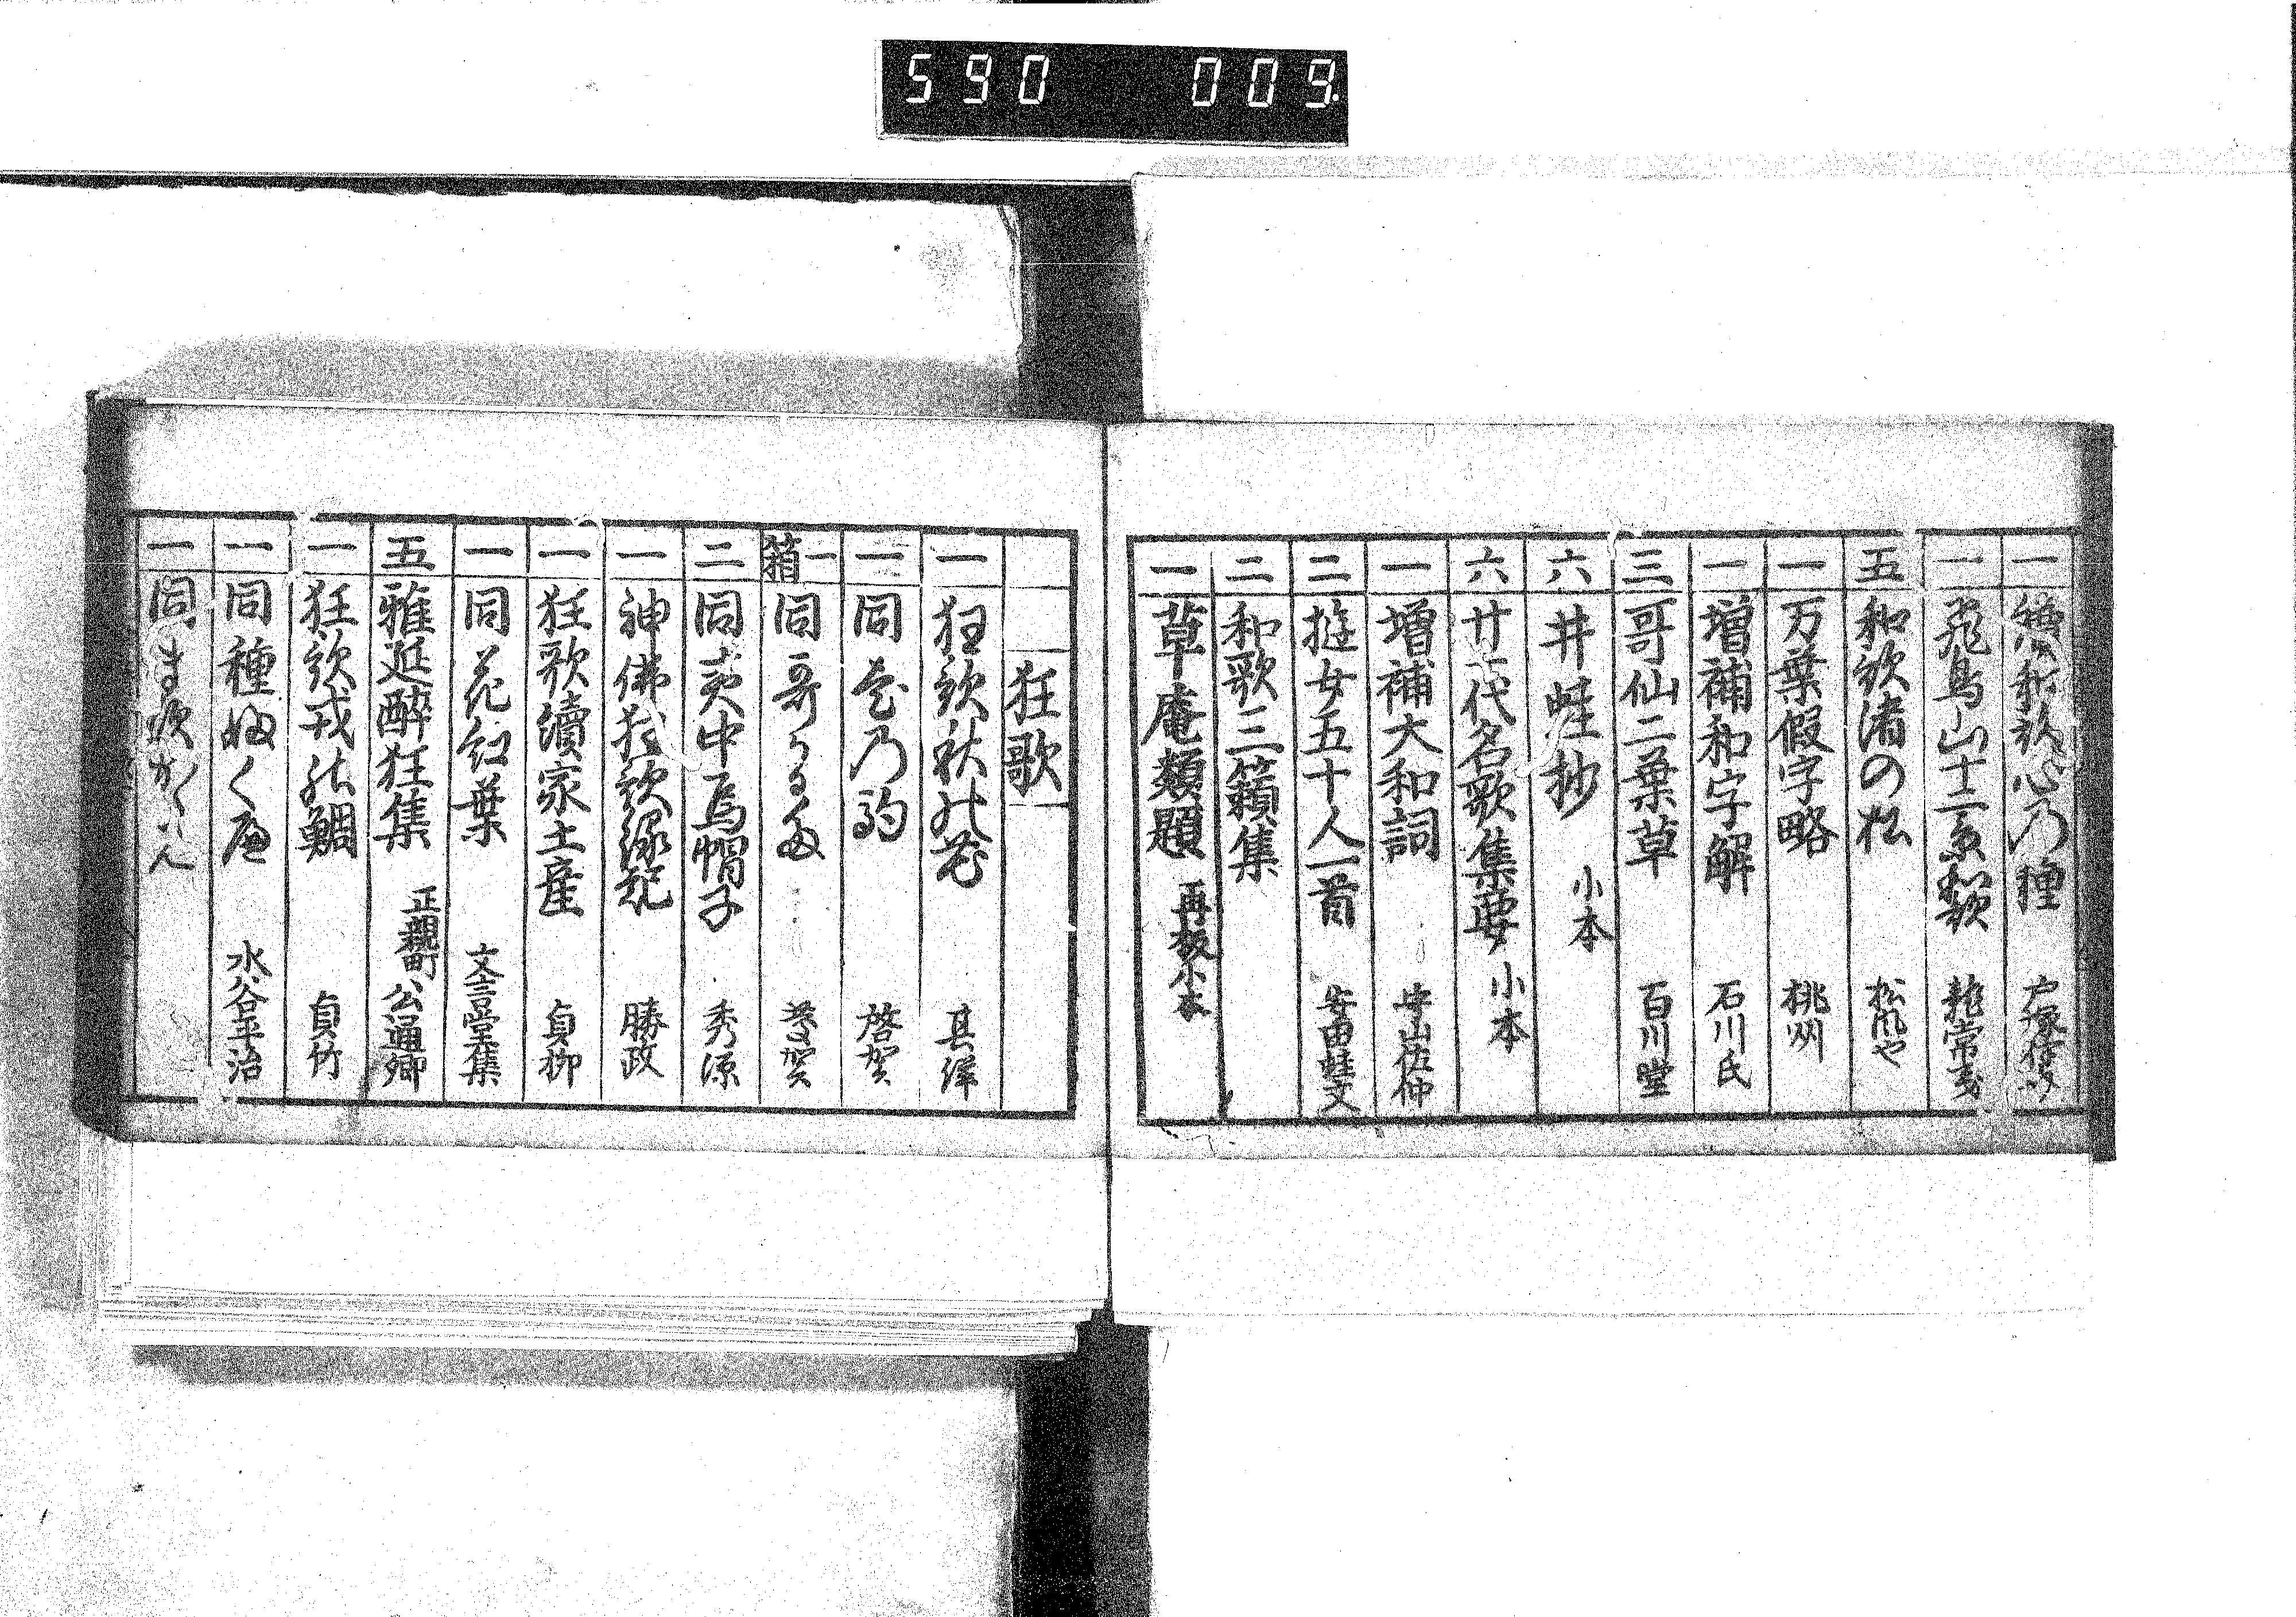 590 009
一 和歌心乃種
一 飛鳥山十二景和歌
五 和歌渚の松 松風や
一 万葉假字略 桃州
一 増補和字解 石川氏
三 哥仙二葉草 百川堂
六 井蛙抄 小本
六 廿一代名歌集要 小本
一 増補大和詞
二 女五十人一首 安田蛙文
二 和歌三籟集
一 草庵類題 再板小本
狂歌
一 狂歌秋の花 其律
一 同 乃 啓賀
一箱 同 哥うるた
二 同夷中烏帽子 秀源
一 神佛狂歌縁記 勝政
一 狂歌續家土産 貞柳
一 同花紅葉 文言堂集
五 雅筵醉狂集 正親町公通卿
一 狂歌戎の鯛 貞竹
一 同種ふくへ 水谷平治
一 同ますかくハん